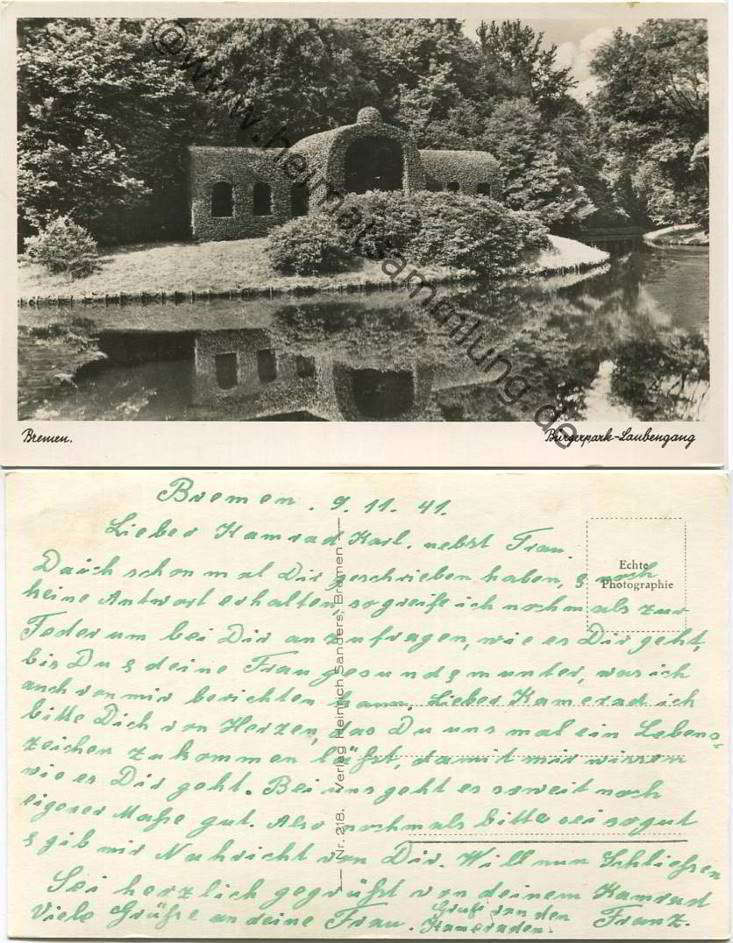 © www.heimatsammlung.de
Bremen.
Bürgerpark-Laubengang
Bremen. 9. 11. 41.
Lieber Kamrad Karl. nebst Frau.
Echte
Photographie
Da ich schon mal Dir geschrieben haben, & noch
keine Antwort erhalten, so greife ich nochmals zur
Feder um bei Dir anzufragen, wie es Dir geht,
bis Du & deine Frau gesund & munter, was ich
auch von mir berichten kann, Lieber Kamerad ich
bitte Dich von Herzen, das Du uns mal ein Lebens-
zeichen zukommen läßt, damit mir wissen
wie es Dir geht. Bei uns geht es soweit noch
eigener Maße gut. Also nochmals bitte sei so gut
& gib mir Nachricht von Dir. Will nun Schließen
Sei herzlich gegrüßt von deinem Kamrad
Viele Grüße an deine Frau. Gruß von den Franz.
Kameraden.
Nr. 218. Verlag Heinrich Sanders, Bremen